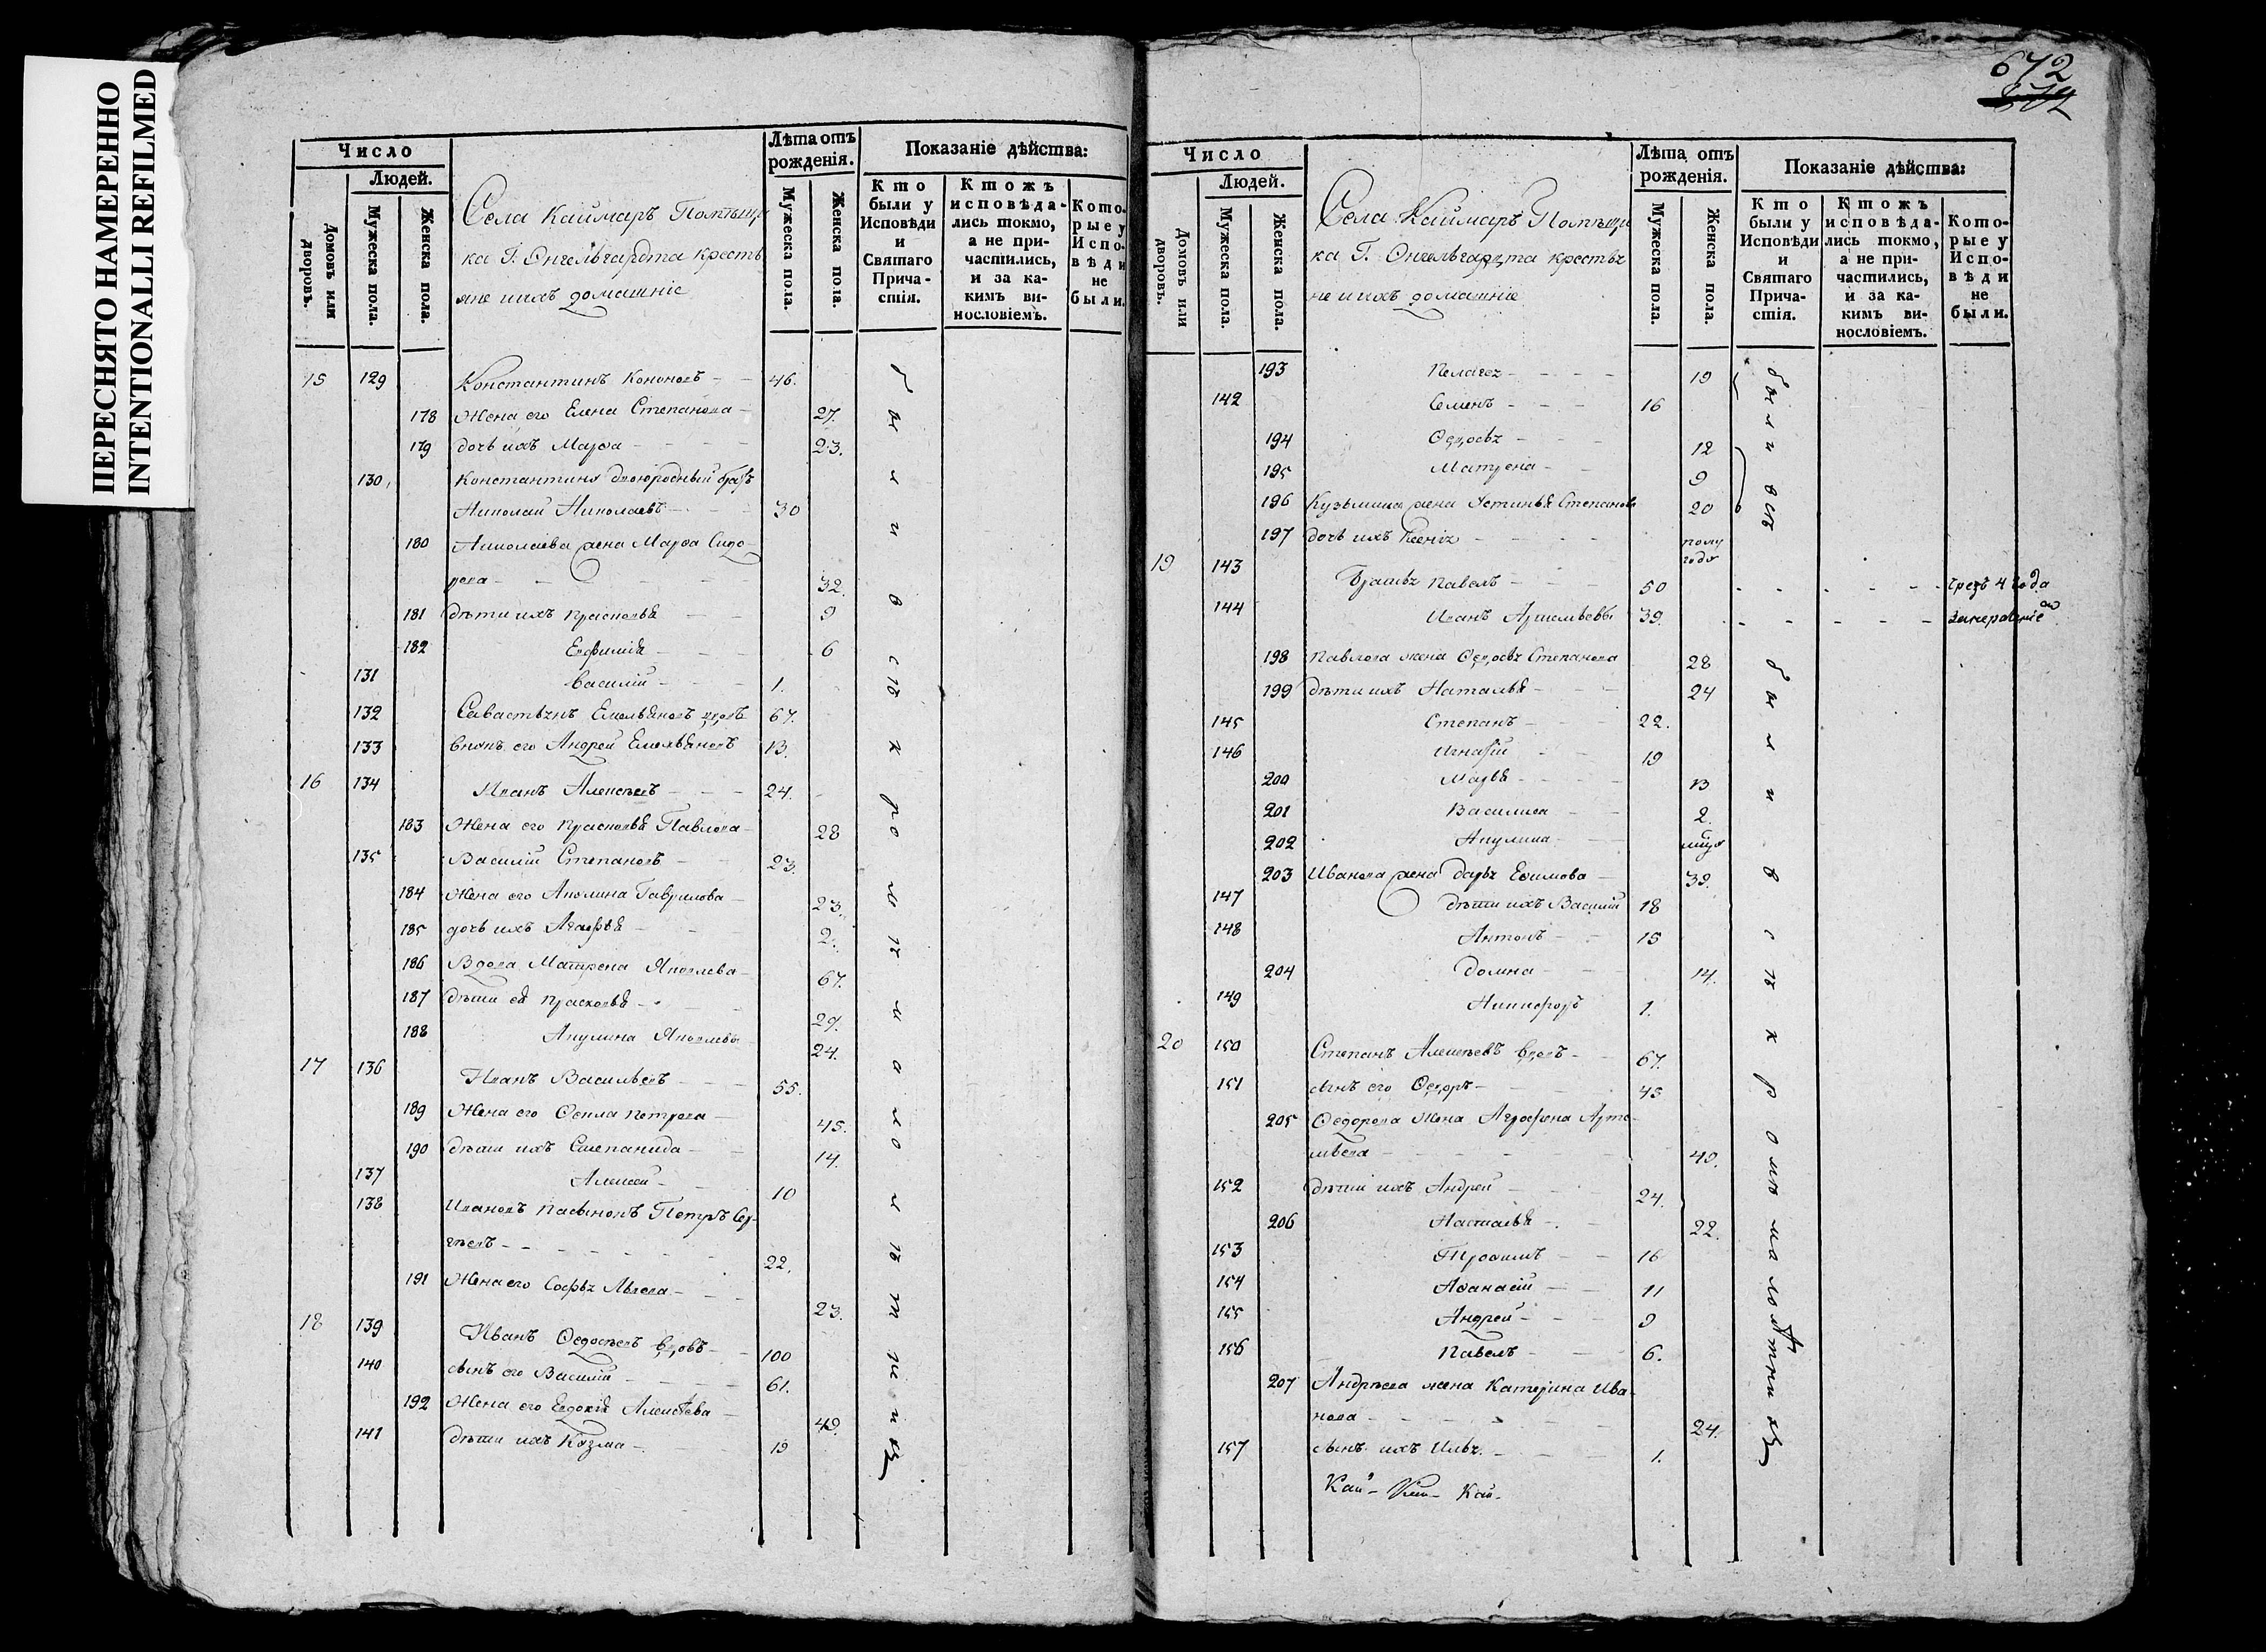 ПЕРЕСНЯТО НАМЕРЕННО
INTENTIONALLI REFILMED
Число
Людей.
Домовъ или дворовъ.
Мужеска пола.
Женска пола.
Села Каймаръ Помѣщи
ка Г. Энгельгардта крестья
яне и ихъ домашніе
Лѣта отъ рожденія.
Мужеска пола.
Женска пола.
Показаніе дѣйства:
Кто были у Исповѣди и Святаго Причастія.
Ктожъ исповѣдались токмо, а не причастились, и за какимъ винословіемъ.
Которые у Исповѣди не были.
15 129 Константинъ Кононовъ 46.
178 Жена его Елена Степанова 27.
179 дочь ихъ Марѳа 23.
130 Константина двоюродный братъ
Николай Николаевъ 30
180 Николаева жена Марѳа Сидо
рова 32.
181 дѣти ихъ Прасковья 9
182 Евфимія 6
131 Василій 1.
132 Савастьянъ Емельяновъ вдовъ 67.
133 внукъ его Андрей Емельяновъ 13.
16 134 Иванъ Алексѣевъ 24.
183 Жена его Прасковья Павлова 28
135 Василій Степановъ 23.
184 Жена его Акулина Гаврилова 23.
185 дочь ихъ Агафья 2.
186 Вдова Матрена Яковлева 67.
187 дѣти ея Прасковья 29.
188 Акулина Яковлевы 24.
17 136 Иванъ Васильевъ 55.
189 Жена его Ѳекла Петрова 45.
190 дѣти ихъ Степанида 14.
137 Алексѣй 10
138 Ивановъ пасынокъ Петръ Сер
гѣевъ 22.
191 Жена его Софья Львова 23.
18 139 Иванъ Ѳедосѣевъ вдовъ 100
140 сынъ его Василій 61.
192 Жена его Евдокія Алексѣева 49.
141 дѣти ихъ Козма 19
были всѣ кромѣ малолѣтнихъ
672
Число
Людей.
Домовъ или дворовъ.
Мужеска пола.
Женска пола.
Села Каймаръ Помѣщи
ка Г. Энгельгардта крестья
не и ихъ домашніе
Лѣта отъ рожденія.
Мужеска пола.
Женска пола.
Показаніе дѣйства:
Кто были у Исповѣди и Святаго Причастія.
Ктожъ исповѣдались токмо, а не причастились, и за какимъ винословіемъ.
Которые у Исповѣди не были.
193 Пелагея 19
142 Семенъ 16
194 Ѳедосья 12
195 Матрена 9
196 Кузьмина жена Устинья Степанова 20
197 дочь ихъ Ксенія полу года
были всѣ
19 143 Братья Павелъ 50 чрезъ 4 года
144 Иванъ Артемьевы 39.
198 Павлова жена Ѳедосья Степанова 28
199 дѣти ихъ Наталья 24
145 Степанъ 22.
146 Игнатій 19
200 Марья 13
201 Василиса 2.
202 Акулина
203 Иванова жена Дарья Ефимова 39.
147 дѣти ихъ Василій 18
148 Антонъ 15
204 Домна 14.
149 Никифоръ 1.
20 150 Степанъ Алексѣевъ вдовъ 67.
151 сынъ его Ѳедоръ 45
205 Ѳедорова жена Аграфена Арте
мьева 49.
152 дѣти ихъ Андрей 24.
206 Наталья 22.
153 Трофимъ 16
154 Аѳанасій 11
155 Андрей 9
156 Павелъ 6.
207 Андрѣева жена Катерина Ива
нова 24.
157 сынъ ихъ Илья 1.
были всѣ кромѣ малолѣтнихъ
Кай- Кай- Кай-